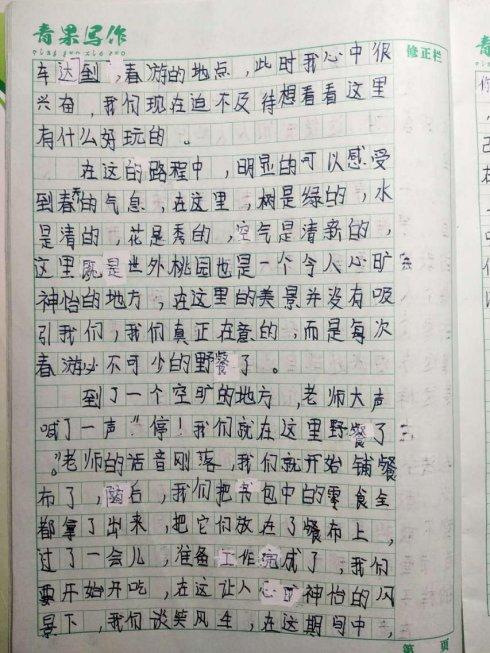 青果写作
qing guo xie zuo
修正栏
车达到，春游的地点，此时我心中很
兴奋，我们现在迫不及待想看看这里
有什么好玩的。
在这的路程中，明显的可以感受
到春的气息，在这里，树是绿的，水
是清的，花是秀的，空气是清新的，
这里既是世外桃园也是一个令人心旷
神怡的地方，在这里的美景并没有吸
引我们，我们真正在意的，而是每次
春游必不可少的野餐了。
到了一个空旷的地方，老师大声
喊了一声"停！我们就在这里野餐了
。"老师的话音刚落，我们就开始铺餐
布了，随后，我们把书包中的零食全
都拿了出来，把它们放在了餐布上，
过了一会儿，准备工作完成了，我们
要开始开吃，在这让人心旷神怡的风
景下，我们谈笑风生，在这期间中，
第 页